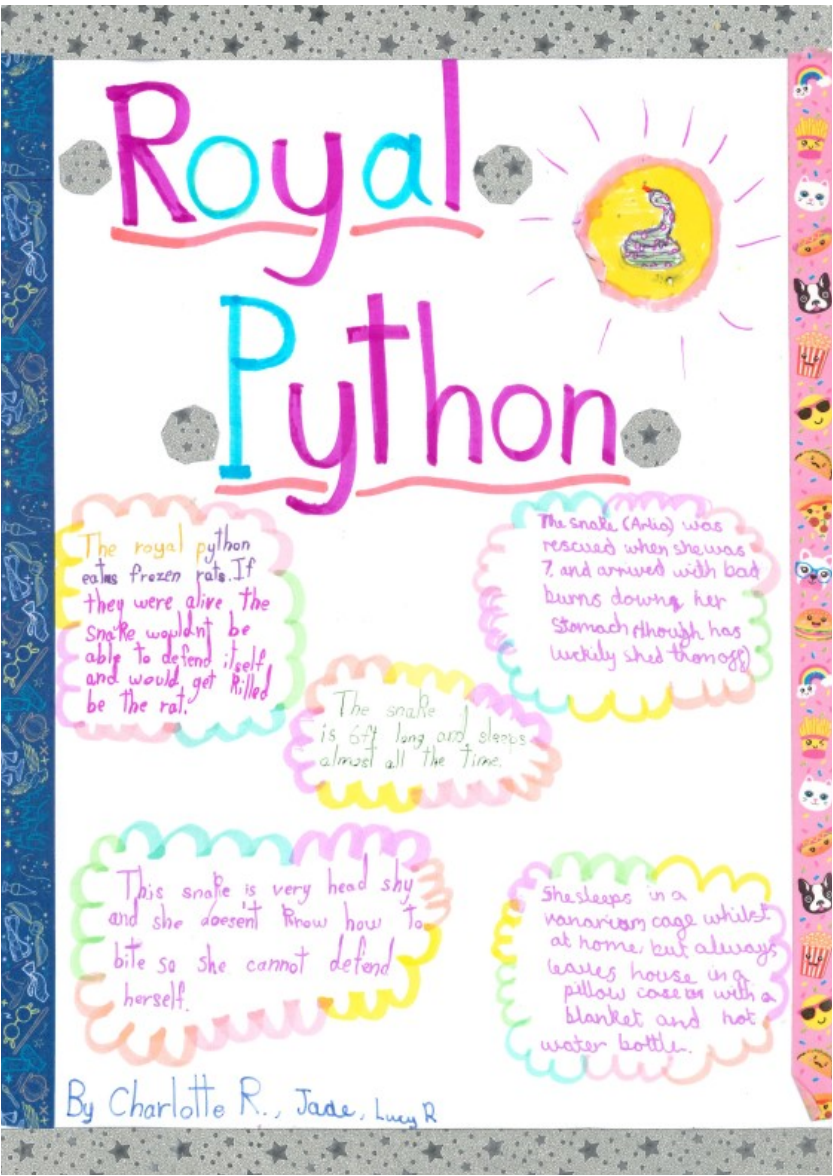 Royal
Python
The royal python
eatus frozen rats. If
they were alive the
snake wouldn't be
able to defend itself
and would get killed
be the rat.
The snake (Arlia) was
rescued when she was
7, and arrived with bad
burns down her
stomach (though has
luckily shed them off)
The snake
is 6ft long and sleeps
almost all the time.
This snake is very head shy
and she doesen't know how to
bite so she cannot defend
herself.
She sleeps in a
vanarium cage whilst
at home, but always
leaves house in a
pillow case with a
blanket and hot
water bottle.
By Charlotte R., Jade, Lucy R